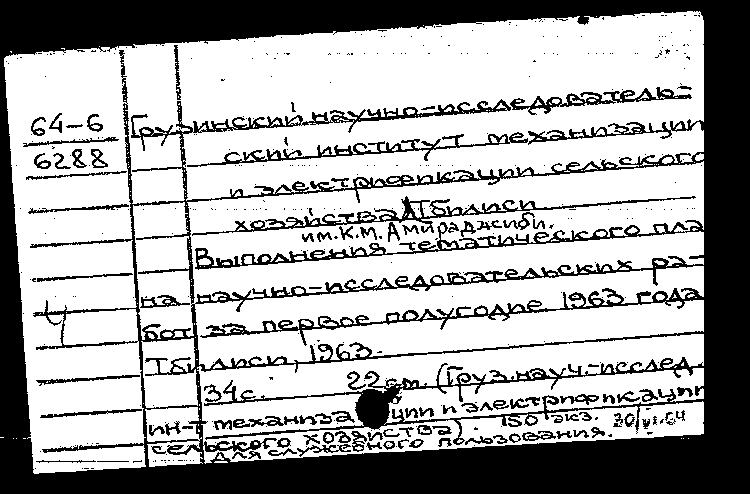 64-6
6288
Грузинский научно-исследователь-
ский институт механизации
и электрификации сельского
хозяйства Тбилиси
им. К.М. Амираджиби.
Выполнения тематического пла
на научно-исследовательских ра-
бот за первое полугодие 1963 года
Тбилиси, 1963.
34с. 22 см. (Груз.науч.-исслед.
ин-т механизации и электрификации
сельского хозяйства). 150 экз. 30/VI-64
Для служебного пользования.